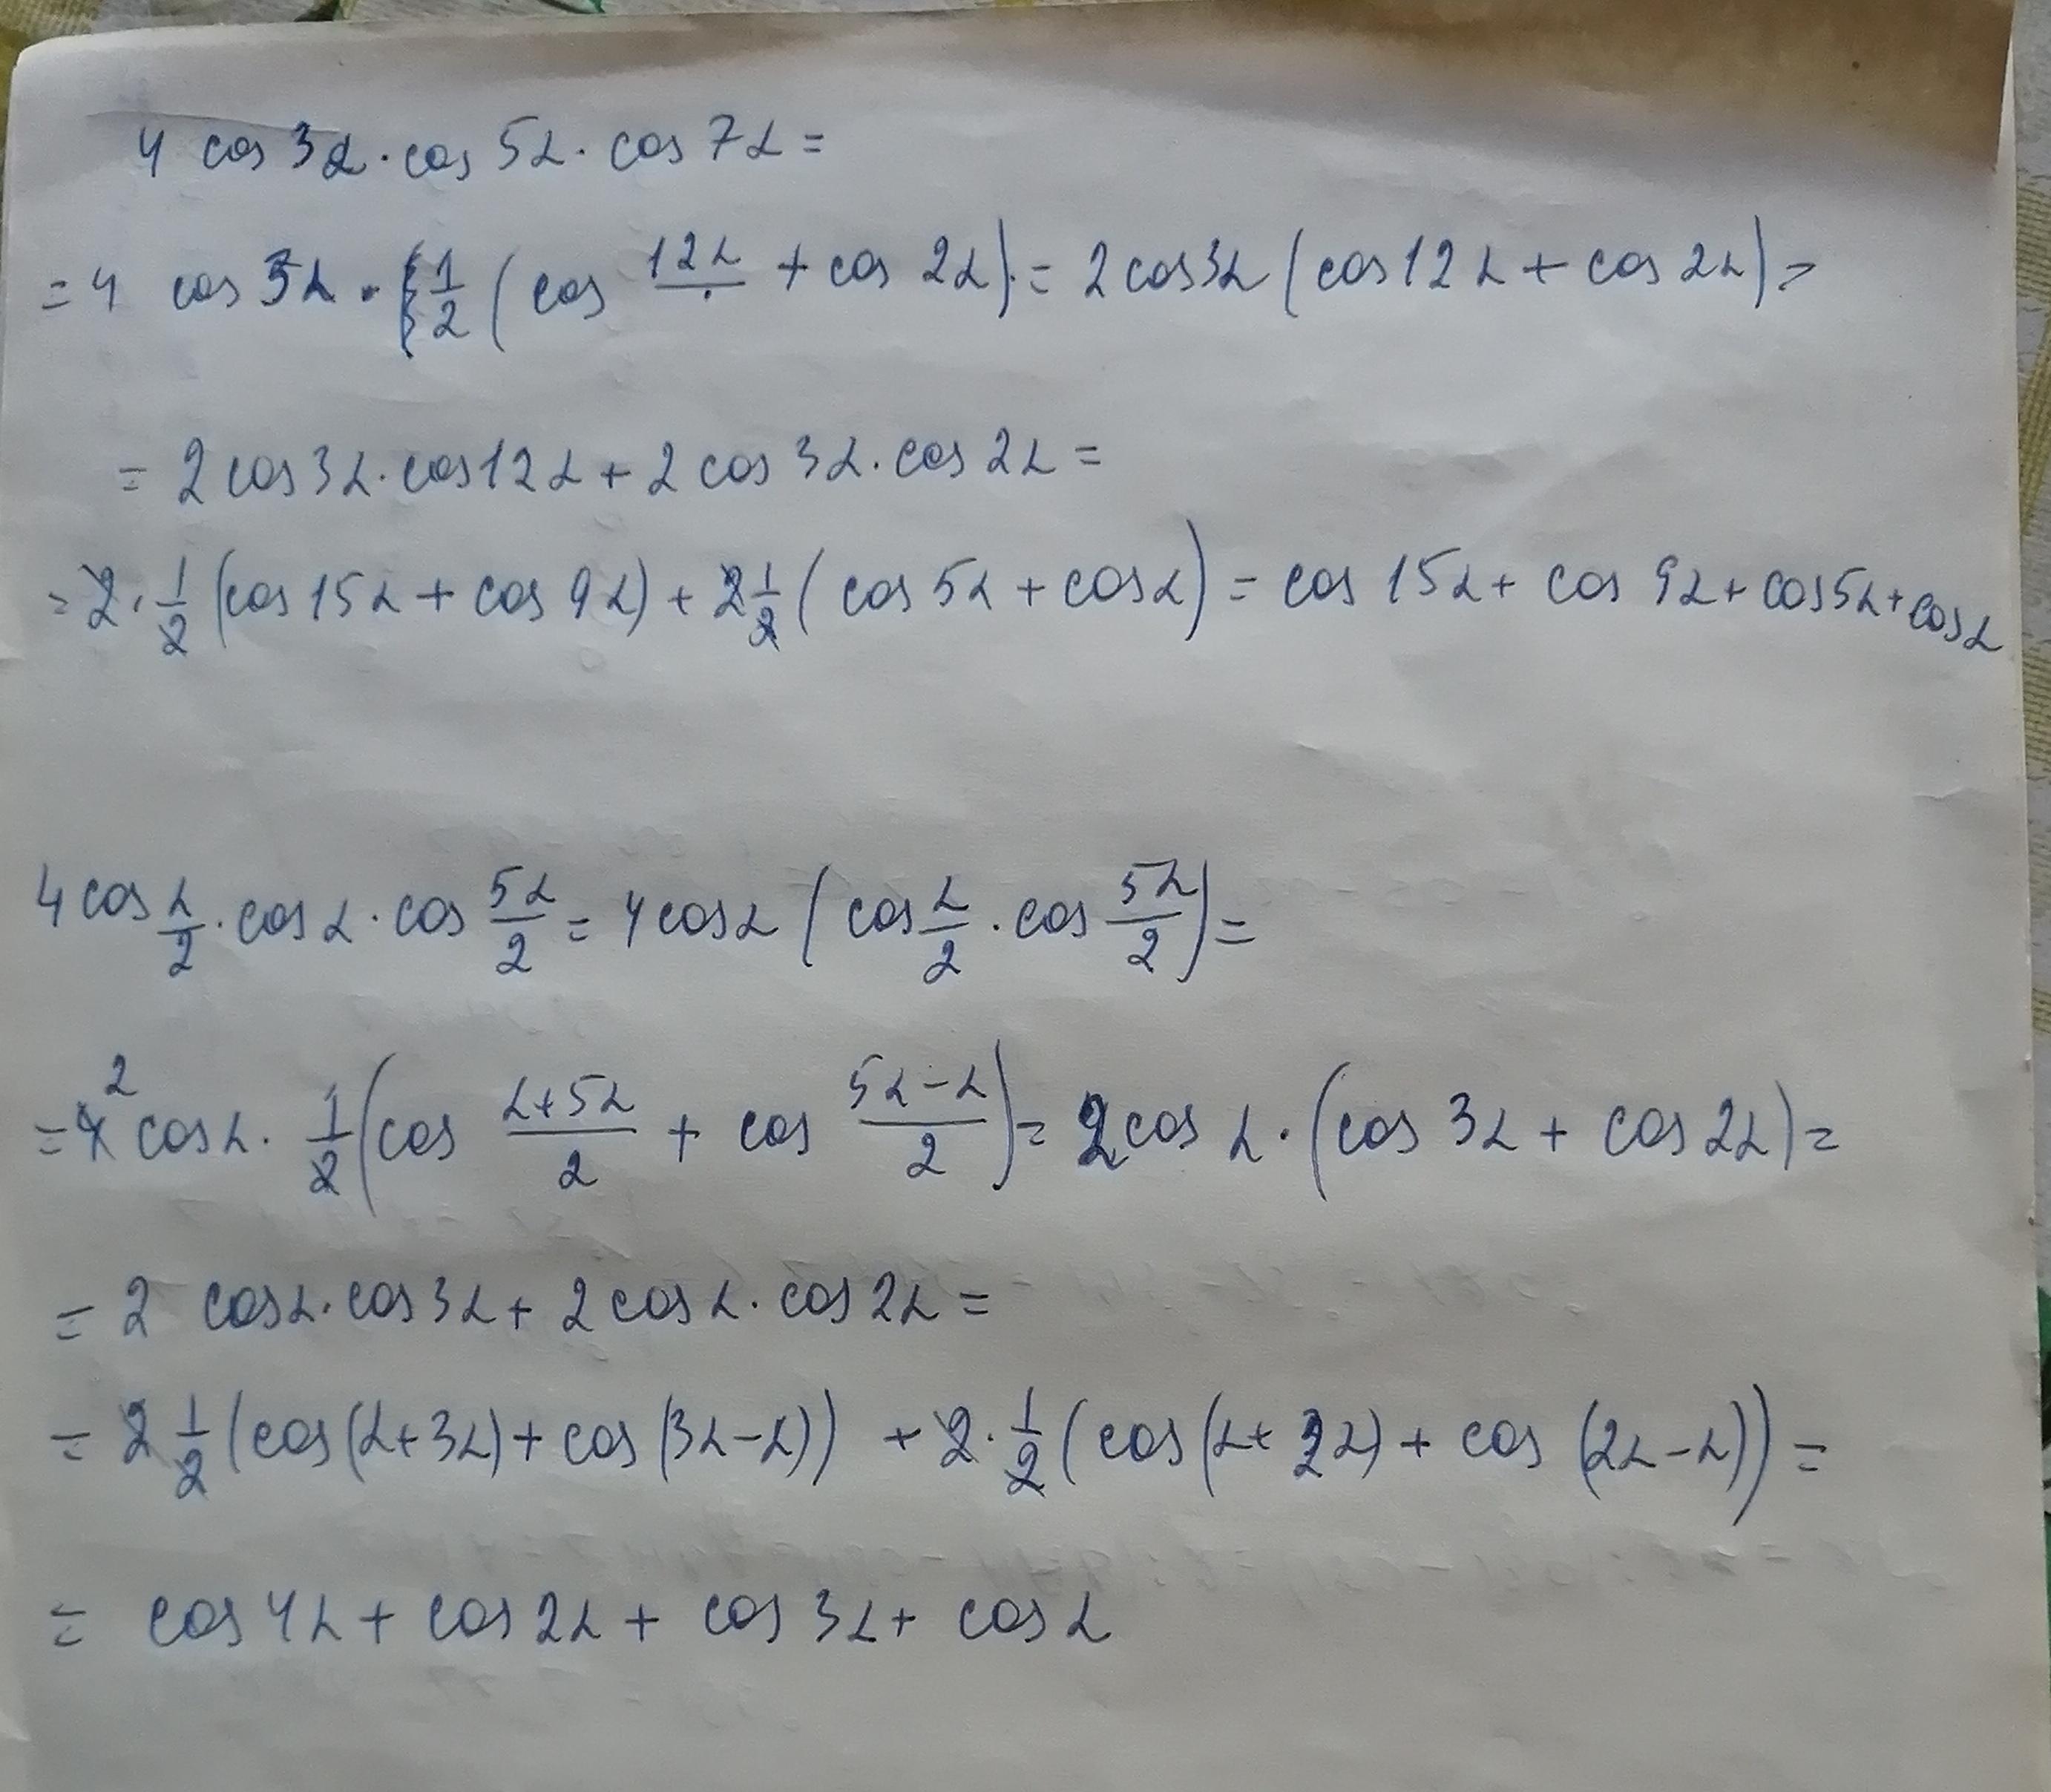 4 cos 3α · cos 5α · cos 7α =
= 4 cos 3α · 1/2 (cos 12α + cos 2α) = 2 cos 3α (cos 12α + cos 2α) =
= 2 cos 3α · cos 12α + 2 cos 3α · cos 2α =
= 2 · 1/2 (cos 15α + cos 9α) + 2 1/2 (cos 5α + cos α) = cos 15α + cos 9α + cos 5α + cos α
4 cos α/2 · cos α · cos 5α/2 = 4 cos α (cos α/2 · cos 5α/2) =
= 4 2 cos α · 1/2 (cos (α+5α)/2 + cos (5α-α)/2) = 2 cos α · (cos 3α + cos 2α) =
= 2 cos α · cos 3α + 2 cos α · cos 2α =
= 2 1/2 (cos(α+3α) + cos(3α-α)) + 2 · 1/2 (cos(α+2α) + cos(2α-α)) =
= cos 4α + cos 2α + cos 3α + cos α